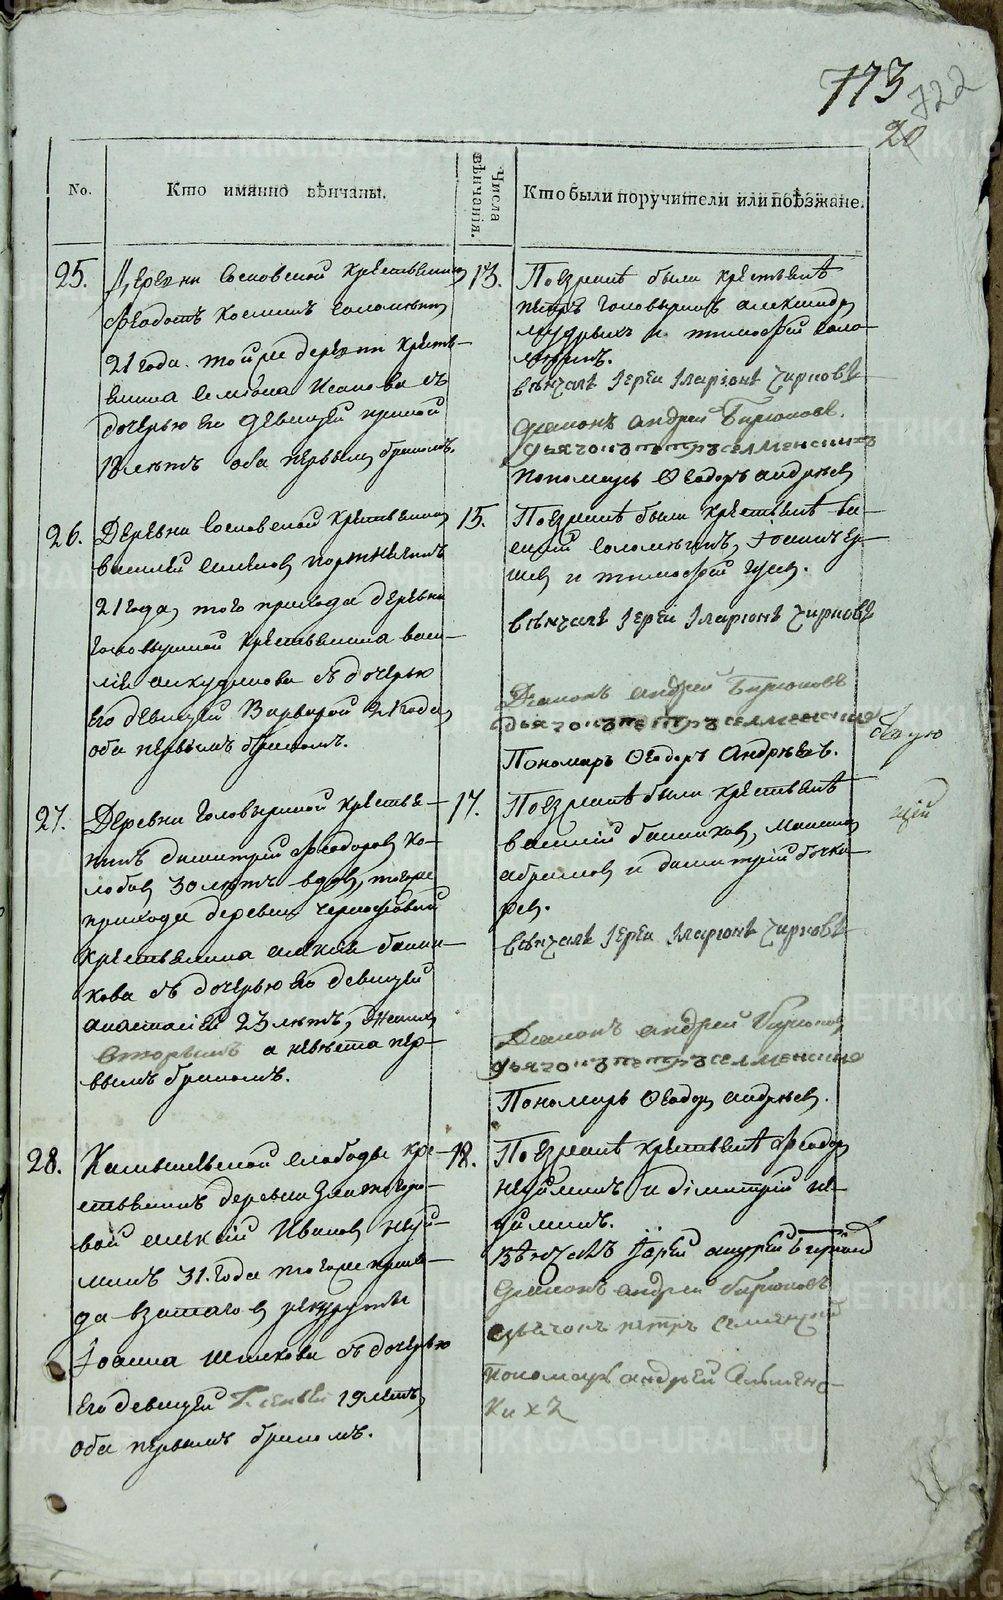 773
722
20
No.
Кто имянно вѣнчаны.
Числа вѣнчанія.
Кто были поручители или поѣзжане.
25. Деревни Сосновской крестьянинъ
Феодотъ Косминъ Соломѣинъ
21 года. тойже деревни кресть-
янина Симеона Исакова съ
дочерью его девицей
18 лѣтъ оба первымъ бракомъ.
13.
Поезжанѣ были крестьянѣ
Петръ Головыринъ александръ
мудрыхъ и тимофей Соло-
мѣинъ.
вѣнчалъ Іерей Іларіонъ Чирковъ
Диаконъ андрей Бирюковъ.
дьячокъ петръ селменскихъ
пономарь Ѳеодоръ андрѣевъ
26. Деревни Сосновской крестьянинъ
василей портнягинъ
21 года, того прихода деревни
Головыриной крестьянина васи-
лія анкудинова съ дочерью
его девицей Варварой 21 года,
оба первымъ бракомъ.
15.
Поезжанѣ были крестьянѣ ва-
силий соломѣинъ, Іоаннъ ер-
шев и тимофей гусев.
вѣнчалъ Іерей Іларіонъ Чирковъ
Диаконъ андрей Бирюковъ
дьячокъ петръ селменскихъ
Пономарь Ѳеодоръ Андрѣевъ.
27. Деревни Головыриной крестья-
нинъ димитрий Феодоров Ко-
лобов 30 лѣтъ вдовъ, тогоже
прихода деревни
крестьянина алексѣя баши-
кова съ дочерью его девицей
анастасіей 23 лѣтъ, женихъ
вторымъ а невѣста пер-
вымъ бракомъ.
17.
Поезжанѣ были крестьянѣ
василій башиков, Максим
абрамов и димитрій бочка-
рев.
вѣнчалъ Іерей Іларіонъ Чирковъ
Диаконъ андрей Бирюковъ
дьячокъ петръ селменскихъ
Пономарь Ѳеодоръ андрѣев.
28. Камышевской слободы кре-
стьянинъ деревни
вой алексій Иванов неуй-
минъ 31. года тогоже прихо-
да взятаго в рекруты
Іоанна шилкова съ дочерью
его девицей 19 лѣтъ,
оба первымъ бракомъ.
18.
Поезжанѣ крестьянѣ Феодор
неуйминъ и димитрій не-
уйминъ.
Вѣнчалъ Іерей андрей
Диаконъ андрей бирюковъ
дьячокъ петръ селменских
пономарь андрей Селменс-
кихъ